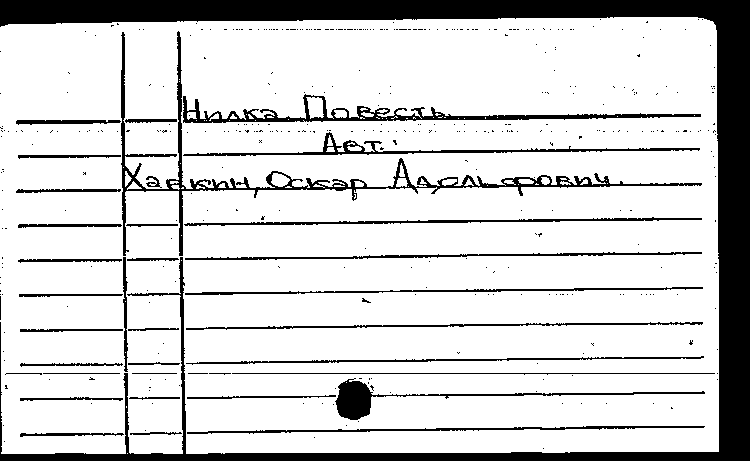 Нилка. Повесть.
Авт.:
Хавкин, Оскар Адольфович.